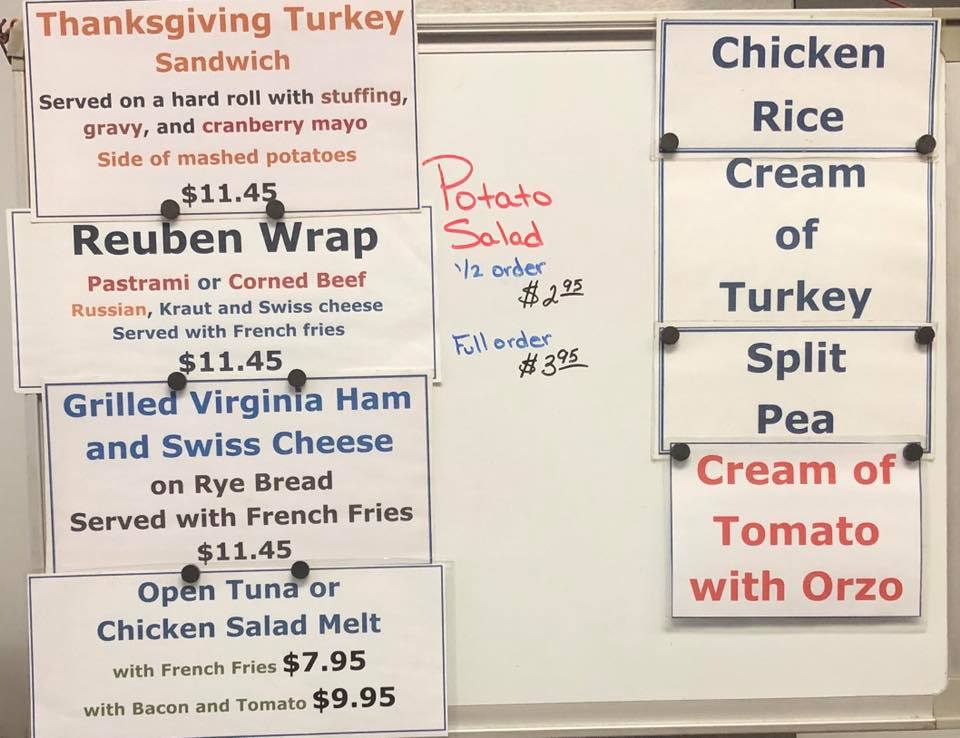 Thanksgiving Turkey
Sandwich
Served on a hard roll with stuffing,
gravy, and cranberry mayo
Side of mashed potatoes
$11.45
Reuben Wrap
Pastrami or Corned Beef
Russian, Kraut and Swiss cheese
Served with French fries
$11.45
Grilled Virginia Ham
and Swiss Cheese
on Rye Bread
Served with French Fries
$11.45
Open Tuna or
Chicken Salad Melt
with French Fries $7.95
with Bacon and Tomato $9.95
Potato
Salad
1/2 order
$2.95
Full order
$3.95
Chicken
Rice
Cream
of
Turkey
Split
Pea
Cream of
Tomato
with Orzo